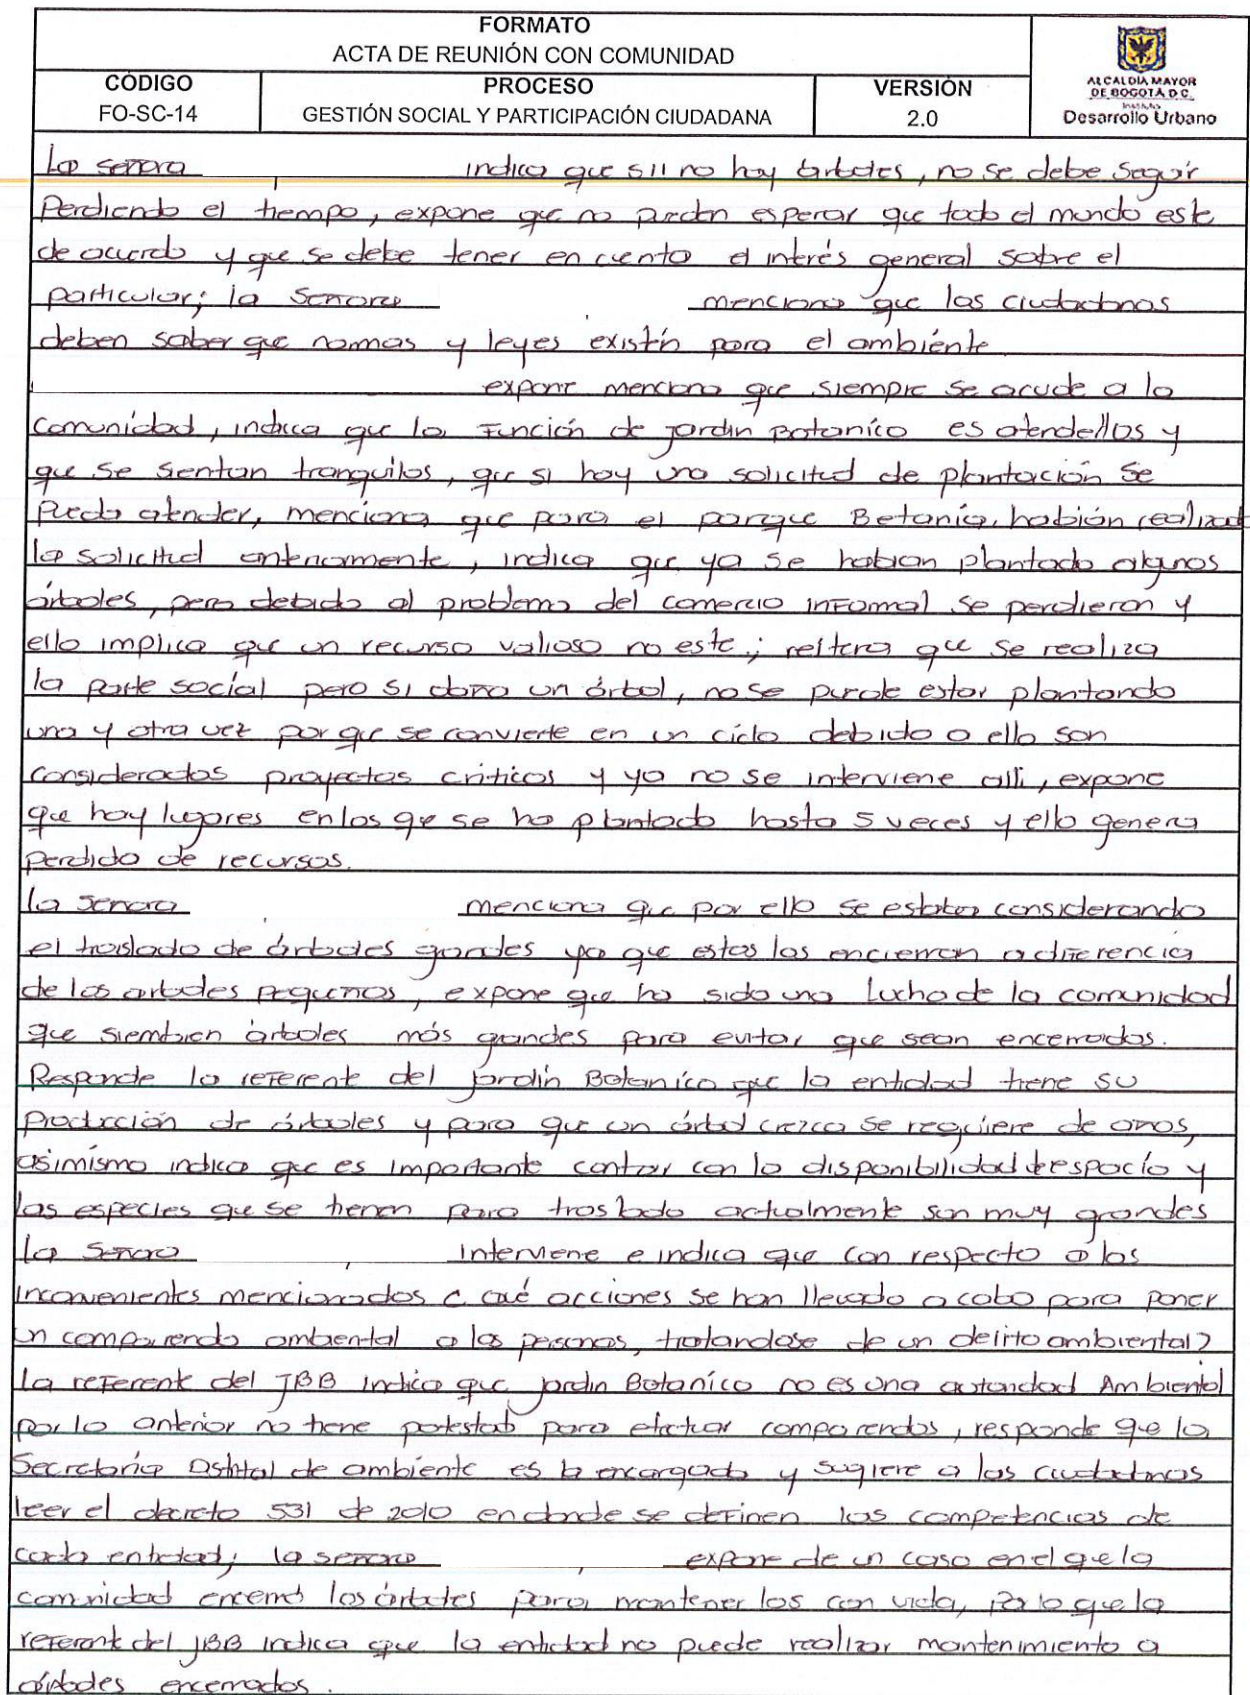 FORMATO
ACTA DE REUNIÓN CON COMUNIDAD
CÓDIGO
FO-SC-14
PROCESO
GESTIÓN SOCIAL Y PARTICIPACIÓN CIUDADANA
VERSIÓN
2.0
ALCALDÍA MAYOR
DE BOGOTÁ D.C.
Instituto
Desarrollo Urbano
La señora indica que si no hay árboles, no se debe seguir
Perdiendo el tiempo, expone que no pueden esperar que todo el mundo este
de acuerdo y que se debe tener en cuenta el interés general sobre el
particular; la Señora menciona que los ciudadanos
deben saber que normas y leyes existen para el ambiente
expone menciona que siempre se acude a la
comunidad, indica que la Función de jardín Botanico es atenderlos y
que se sientan tranquilos, que si hay una solicitud de plantación se
pueda atender, menciona que para el parque Betania, habían realizado
la solicitud anteriormente, indica que ya se habían plantado algunos
árboles, pero debido al problema del comercio informal se perdieron y
ello implica que un recurso valioso no este; reitera que se realiza
la parte social pero si daña un árbol, no se puede estar plantando
una y otra vez porque se convierte en un ciclo debido a ello son
considerados proyectos críticos y ya no se interviene allí, expone
que hay lugares en los que se ha plantado hasta 5 veces y ello genera
perdida de recursos.
la señora menciona que por ello se estaba considerando
el traslado de árboles grandes ya que estos los encierran a diferencia
de los arboles pequeños, expone que ha sido una lucha de la comunidad
que siembren árboles más grandes para evitar que sean encerrados.
Responde la referente del jardín Botanico que la entidad tiene su
Producción de árboles y para que un árbol crezca se requiere de años,
asimismo indica que es importante contar con la disponibilidad de espacio y
las especies que se tienen para traslado actualmente son muy grandes
la Señora interviene e indica que con respecto a los
inconvenientes mencionados ¿ qué acciones se han llevado a cabo para poner
un comparendo ambiental a las personas, tratandose de un delito ambiental?
La referente del JBB indica que jardín Botanico no es una autoridad Ambiental
por lo anterior no tiene potestad para efectuar comparendos, responde que la
Secretaría Distrital de ambiente es la encargada y sugiere a los ciudadanos
leer el decreto 531 de 2010 en donde se definen las competencias de
cada entidad; la señora expone de un caso en el que la
comunidad encerró los árboles para mantener los con vida, por lo que la
referente del JBB indica que la entidad no puede realizar mantenimiento a
árboles encerrados.